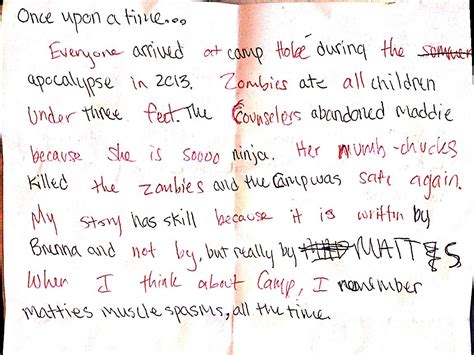 Once upon a time...
Everyone arrived at camp Hobé during the summer
apocalypse in 2013. Zombies ate all children
under three feet. The Counselers abandoned maddie
because she is soooo ninja. Her numb-chucks
killed the zombies and the camp was safe again.
My story has skill because it is written by
Brenna and not by, but really by MATTES.
When I think about Camp, I remember
matties muscle spasms, all the time.